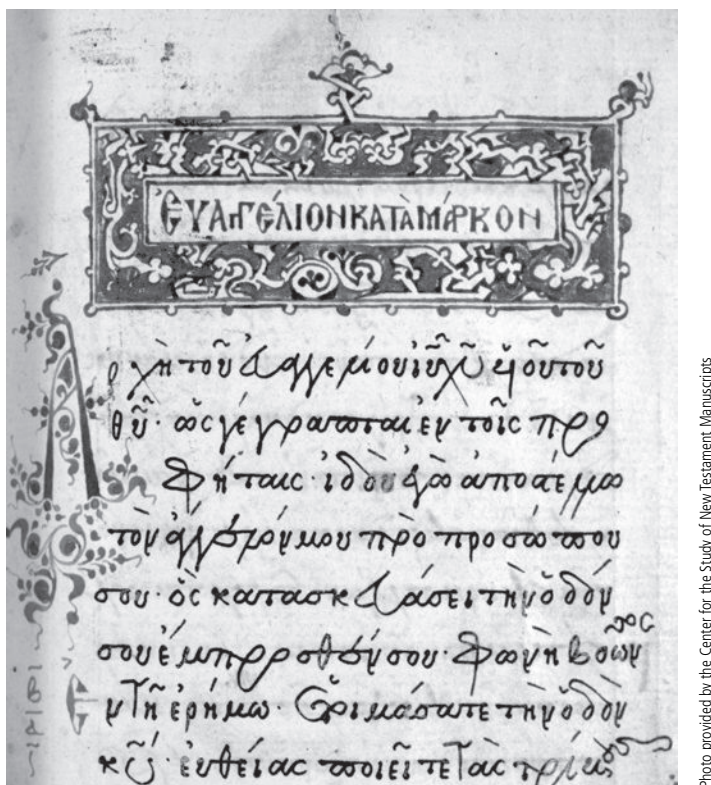 ΕΥΑΓΓΕΛΙΟΝ ΚΑΤΑ ΜΑΡΚΟΝ
Ἀρχὴ τοῦ εὐαγγελίου ιυ χυ υἱοῦ τοῦ
θυ· ὡς γέγραπται ἐν τοῖς προ
φήταις· ἰδοὺ ἐγὼ ἀποστέλλω
τὸν ἄγγελόν μου πρὸ προσώπου
σου· ὃς κατασκευάσει τὴν ὁδόν
σου ἔμπροσθέν σου· φωνὴ βοῶντος
ἐν τῇ ἐρήμω· ἑτοιμάσατε τὴν ὁδὸν
κυ· εὐθείας ποιεῖτε τὰς τρίβους
Photo provided by the Center for the Study of New Testament Manuscripts